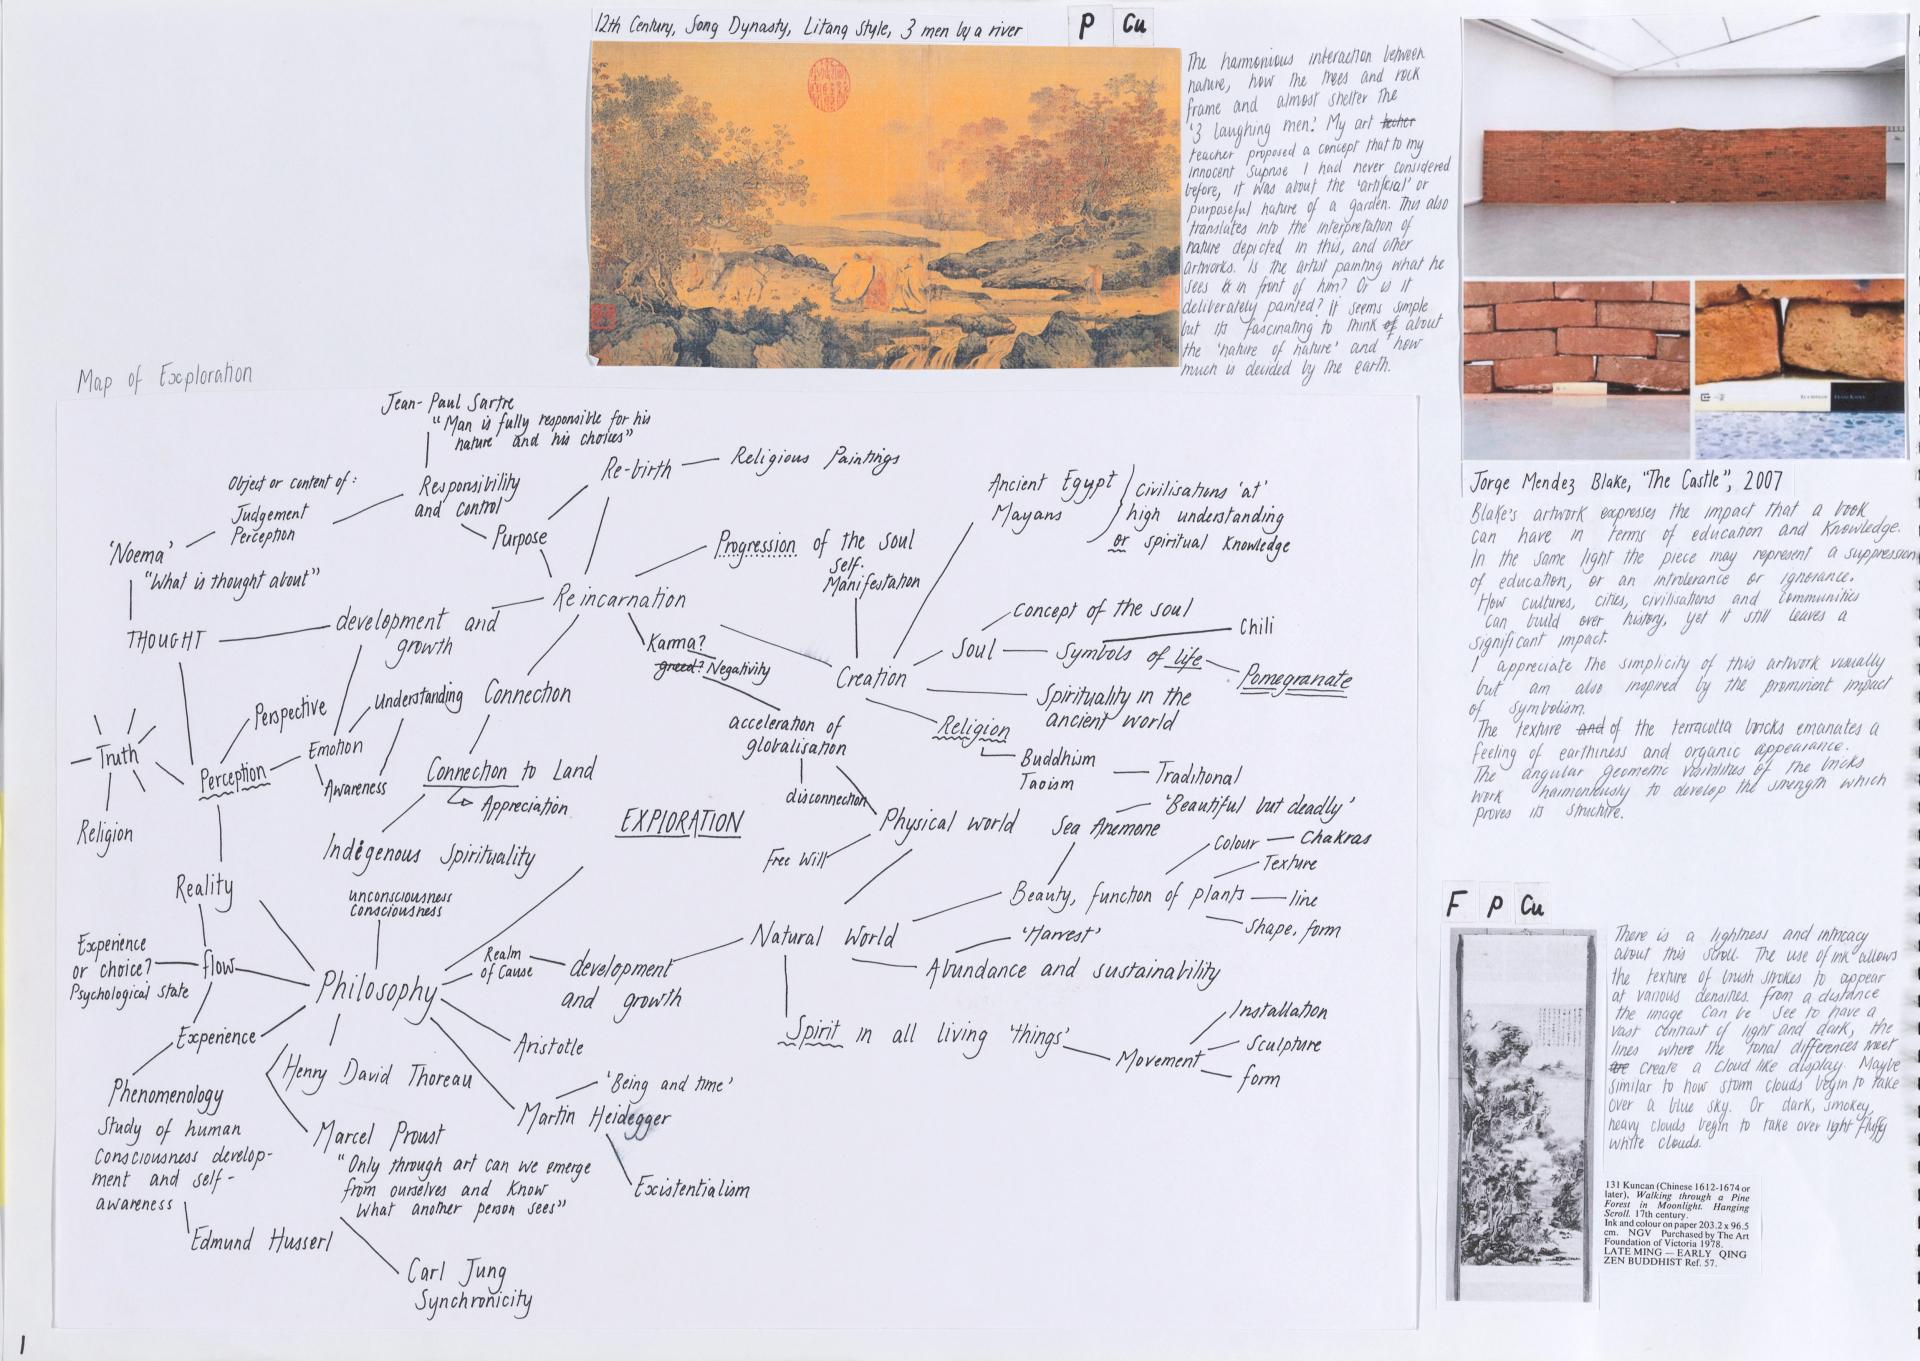 12th Century, Song Dynasty, Litang Style, 3 men by a river
P Cu
The harmonious interaction between
nature, how the trees and rock
frame and almost shelter the
'3 laughing men'. My art techer
teacher proposed a concept that to my
innocent suprise I had never considered
before, it was about the 'artificial' or
purposeful nature of a garden. This also
translates into the interpretation of
nature depicted in this, and other
artworks. Is the artist painting what he
sees in front of him? Or is it
deliberately painted? It seems simple
but its fascinating to think of about
the 'nature of nature' and how
much is decided by the earth.
Jorge Mendez Blake, "The Castle", 2007
Blake's artwork expresses the impact that a book
can have in terms of education and knowledge.
In the same light the piece may represent a suppression
of education, or an intolerance or ignorance.
How cultures, cities, civilisations and communities
can build over history, yet it still leaves a
significant impact.
I appreciate the simplicity of this artwork visually
but am also inspired by the prominent impact
of symbolism.
The texture and of the terracutta bricks emanates a
feeling of earthiness and organic appearance.
The angular geometric of the bricks
work harmoniously to develop the strength which
proves its structure.
F P Cu
There is a lightness and intricacy
about this scroll. The use of ink allows
the texture of brush strokes to appear
at various densities. From a distance
the image can be see to have a
vast contrast of light and dark, the
lines where the tonal differences meet
are create a cloud like display. Maybe
similar to how storm clouds begin to take
over a blue sky. Or dark, smokey,
heavy clouds begin to take over light fluffy
white clouds.
131 Kuncan (Chinese 1612-1674 or
later), Walking through a Pine
Forest in Moonlight. Hanging
Scroll. 17th century.
Ink and colour on paper 203.2 x 96.5
cm. NGV Purchased by The Art
Foundation of Victoria 1978.
LATE MING — EARLY QING
ZEN BUDDHIST Ref. 57.
Map of Exploration
Jean-Paul Sartre
"Man is fully responsible for his
nature and his choices"
Object or content of:
Judgement
Perception
Responsibility
and control
Re-birth
Religious Paintings
Purpose
'Noema'
"What is thought about"
THOUGHT
development and
growth
Reincarnation
Progression of the soul
self.
Manifestation
Ancient Egypt
Mayans
Civilisations 'at'
high understanding
or spiritual knowledge
Karma?
greed? Negativity
Creation
Soul
Concept of the soul
Symbols of life
Chili
Pomegranate
Spirituality in the
ancient world
Religion
Buddhism
Taoism
Traditional
Perspective
Understanding
Connection
Truth
Perception
Emotion
Awareness
Connection to Land
Appreciation
acceleration of
globalisation
disconnection
Religion
EXPLORATION
Physical world
Free Will
Sea Anemone
'Beautiful but deadly'
Indigenous Spirituality
Reality
unconsciousness
consciousness
Beauty, function of plants
Colour
Chakras
Texture
line
Shape, form
Natural World
'Harvest'
Abundance and sustainability
Experience
or choice?
Psychological state
flow
Philosophy
Realm
of Cause
development
and growth
Spirit in all living 'things'
Movement
Installation
Sculpture
form
Experience
Aristotle
Henry David Thoreau
'Being and time'
Martin Heidegger
Existentialism
Phenomenology
Study of human
consciousness develop-
ment and self-
awareness
Marcel Proust
"Only through art can we emerge
from ourselves and know
what another person sees"
Edmund Husserl
Carl Jung
Synchronicity
1